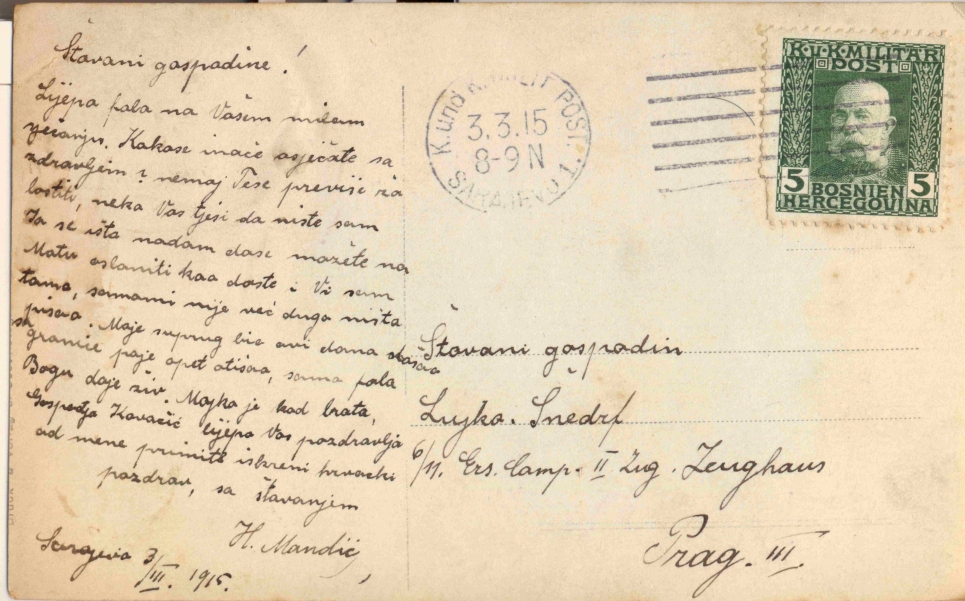 Štovani gospodine!
Lijepa fala na Vašem milom
sjećanju. Kakose inače osjećate sa
zdravljem? nemoj Tese previše ža
lostiti, neka Vas tješi da niste sam
Ja se išta nadam dase možete na
Matu osloniti kao doste i Vi sam
tamo, samomi nije već dugo ništa
pisao. Moje suprug bio ovi dana došao
sa granice paje opet otišao, samo fala
Bogu daje živ. Majka je kod brata,
Gospodja Kovačić lijepo Vas pozdravlja
od mene primite iskreni hrvacki
pozdrav, sa štovanjem
H. Mandić
Sarajevo 3/III. 1915.
K. und K. MILIT. POST.
3.3.15
8-9 N
SARAJEVO 1.
K.u.K. MILITÄR
POST
5 BOSNIEN 5
HERCEGOVINA
Štovani gospodin
Lujko. Šnedrf
6/11. Ers. Comp. II Zug. Zeughaus
Prag. III.